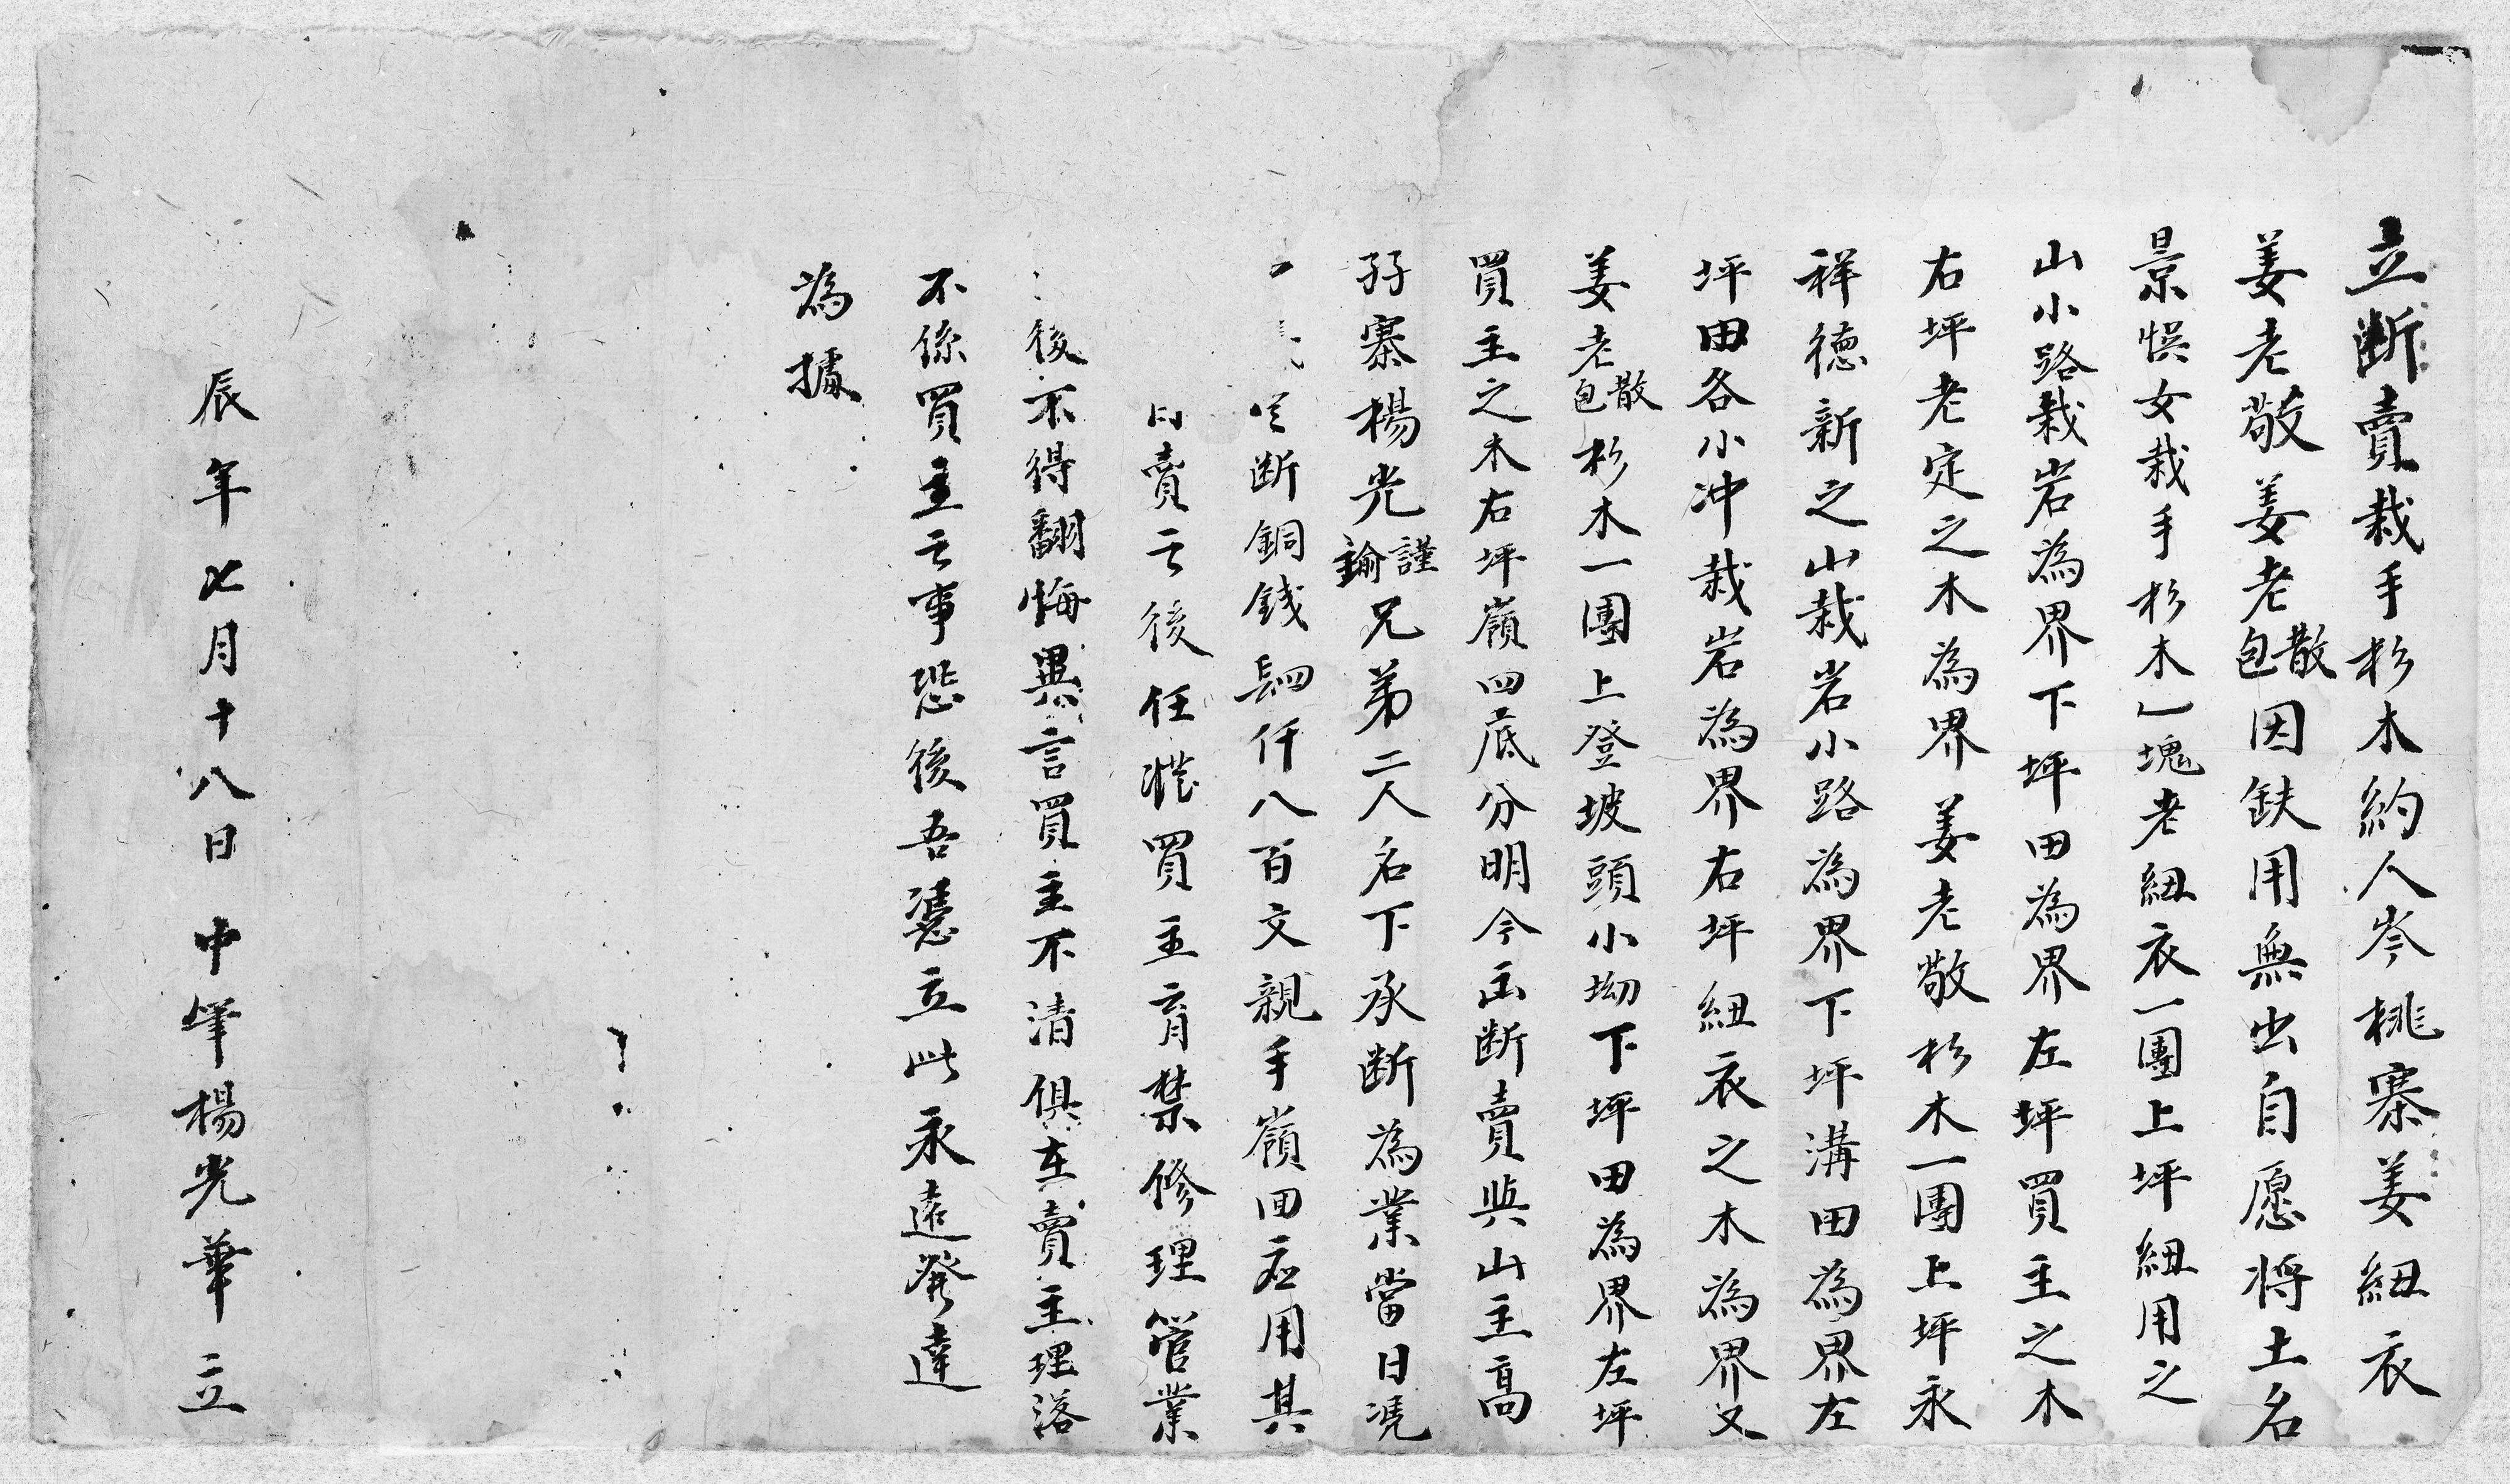 立断賣栽手杉木約人岑桃寨姜紐衣
姜老敬姜老散包因缺用無出自愿将土名
景悮女栽手杉木乙塊老紐衣一團上坪紐用之
山小路栽岩為界下坪田為界左坪買主之木
右坪老定之木為界姜老敬杉木一團上坪永
祥德新之山栽岩小路為界下坪溝田為界左
坪田各小冲栽岩為界右坪紐衣之木為界又
姜老散包杉木一團上登坡頭小坳下坪田為界左坪
買主之木右坪嶺四底分明今出断賣與山主高
孖寨楊光謹鑰兄弟二人名下承断為業當日凴
断銅銭四仟八百文親手嶺回应用其
賣之後任凴買主育禁修理管業
後不得翻悔異言買主不清俱在賣主理落
不係買主之事恐後吾憑立此永遠發達
為據
辰年七月十八日中笔楊光華立